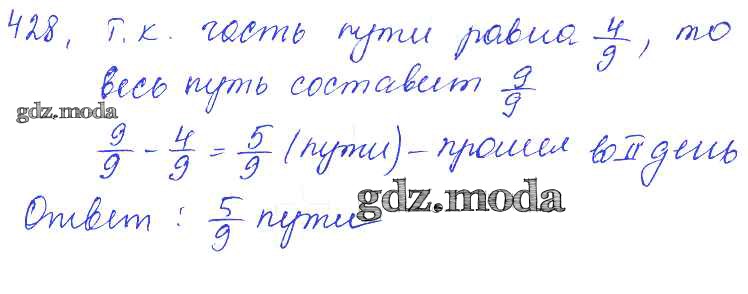 428. Т.к. часть пути равна 4/9, то
весь путь составит 9/9
gdz.moda
9/9 - 4/9 = 5/9 (пути) - прошел во II день
gdz.moda
Ответ: 5/9 пути